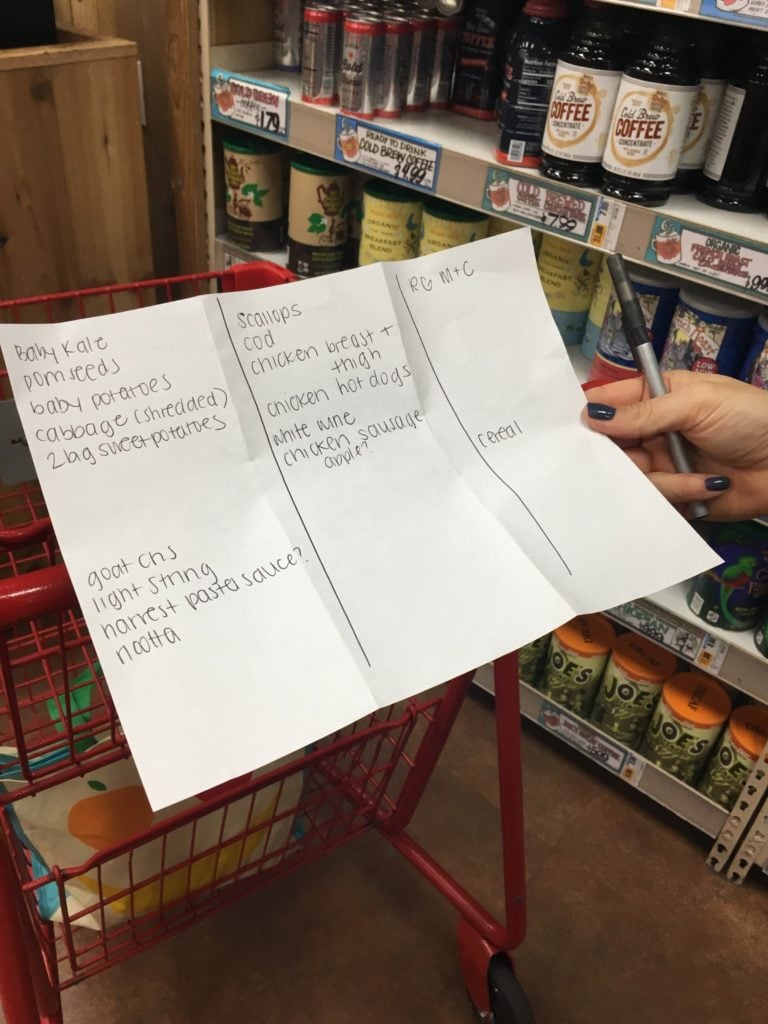 Baby Kale
pom seeds
baby potatoes
cabbage (shredded)
2 big sweet potatoes
goat chs
light string
harvest pasta sauce?
ricotta
scallops
cod
chicken breast +
thigh
chicken hot dogs
white wine
chicken sausage
apple?
RG M+C
cereal
COLD BREW
1.79
READY TO DRINK
COLD BREW COFFEE
$4.99
Cold Brew
COFFEE
CONCENTRATE
Cold Brew
COFFEE
CONCENTRATE
COLD BREWED
7.99
ORGANIC
BREAKFAST
BLEND
BREAKFAST
BLEND
LOW
DECAF
JOE'S
JOE'S
JOE'S
JOE'S